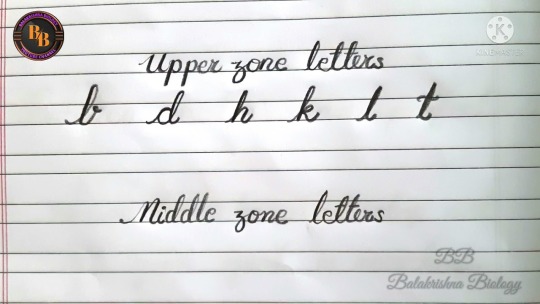 BB
KINEMASTER
Upper zone letters
b d h k l t
Middle zone letters
BB
Balakrishna Biology